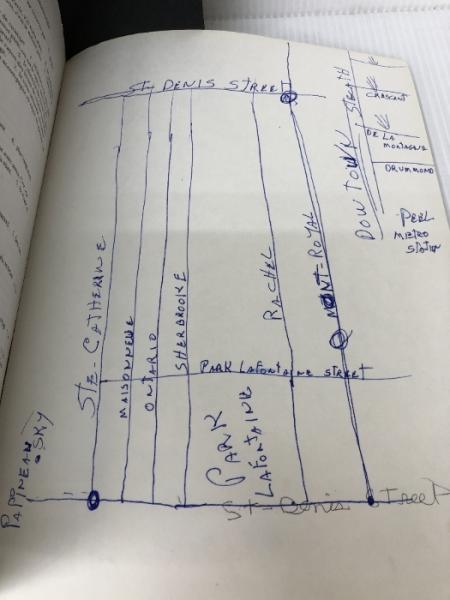 ST-DENIS STREET
STE-CATHERINE
MAISONNEUVE
ONTARIO
SHERBROOKE
RACHEL
MONT-ROYAL
PARK LAFONTAINE STREET
PARK
LAFONTAINE
DOWTOWN
CRASCANT
DE LA
MONTAGNE
DRUMMOND
PEEL
METRO
STATION
SKY
St-Denis Street